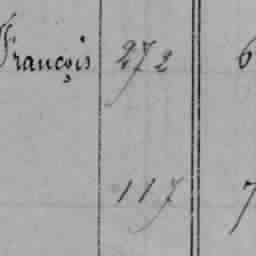 François 272 6
117 7